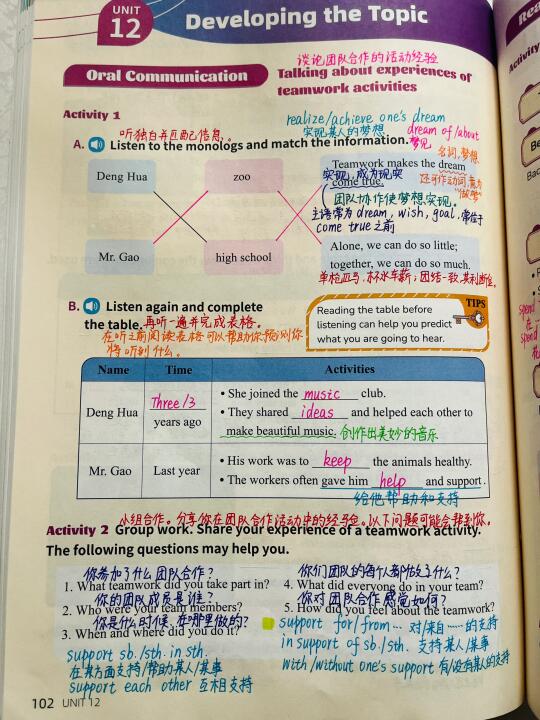 UNIT
12
Developing the Topic
谈论团队合作的活动经验
Oral Communication
Talking about experiences of
teamwork activities
Activity 1
realize/achieve one's dream
实现某人的梦想
dream of/about
梦见
听独白并匹配信息。
A. Listen to the monologs and match the information.
名词,梦想
Deng Hua
zoo
Teamwork makes the dream
come true.
实现,成为现实
还可作动词,意为
"做梦"
团队协作使梦想实现。
主语常为dream, wish, goal, 常位于
come true之前
Mr. Gao
high school
Alone, we can do so little;
together, we can do so much.
单枪匹马,杯水车薪;团结一致,其利断金。
B. Listen again and complete
the table.
再听一遍并完成表格。
在听之前阅读表格可以帮助你预测你
将听到什么。
TIPS
Reading the table before
listening can help you predict
what you are going to hear.
Name
Time
Activities
Deng Hua
Three/3
years ago
• She joined the music club.
• They shared ideas and helped each other to
make beautiful music.
创作出美妙的音乐
Mr. Gao
Last year
• His work was to keep the animals healthy.
• The workers often gave him help and support.
给他帮助和支持
小组合作。分享你在团队合作活动中的经验。以下问题可能会帮到你。
Activity 2 Group work. Share your experience of a teamwork activity.
The following questions may help you.
你参加了什么团队合作?
1. What teamwork did you take part in?
你的团队成员是谁?
2. Who were your team members?
你是什么时候、在哪里做的?
3. When and where did you do it?
你们团队的每个人都做了什么?
4. What did everyone do in your team?
你对团队合作感觉如何?
5. How did you feel about the teamwork?
support sb./sth. in sth.
在某方面支持/帮助某人/某事
support each other 互相支持
support for/from... 对/来自……的支持
in support of sb./sth. 支持某人/某事
with/without one's support 有/没有某人的支持
102 UNIT 12